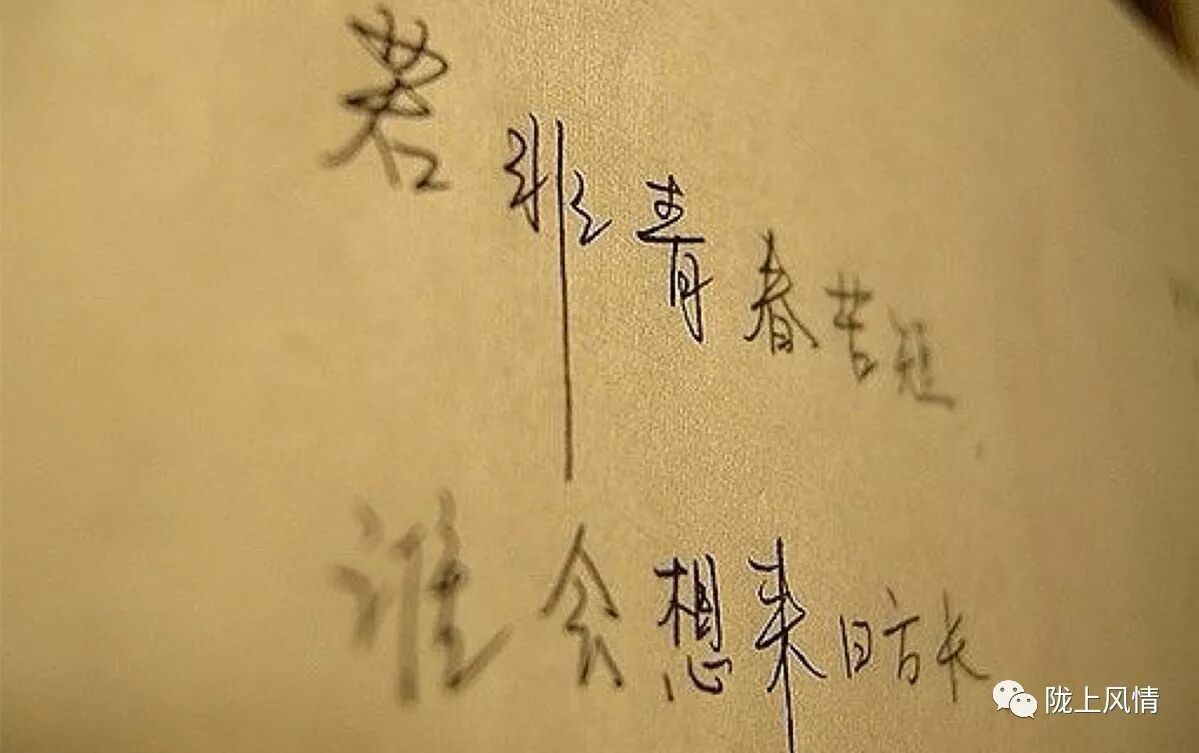 若非青春苦短
谁会想来日方长
陇上风情